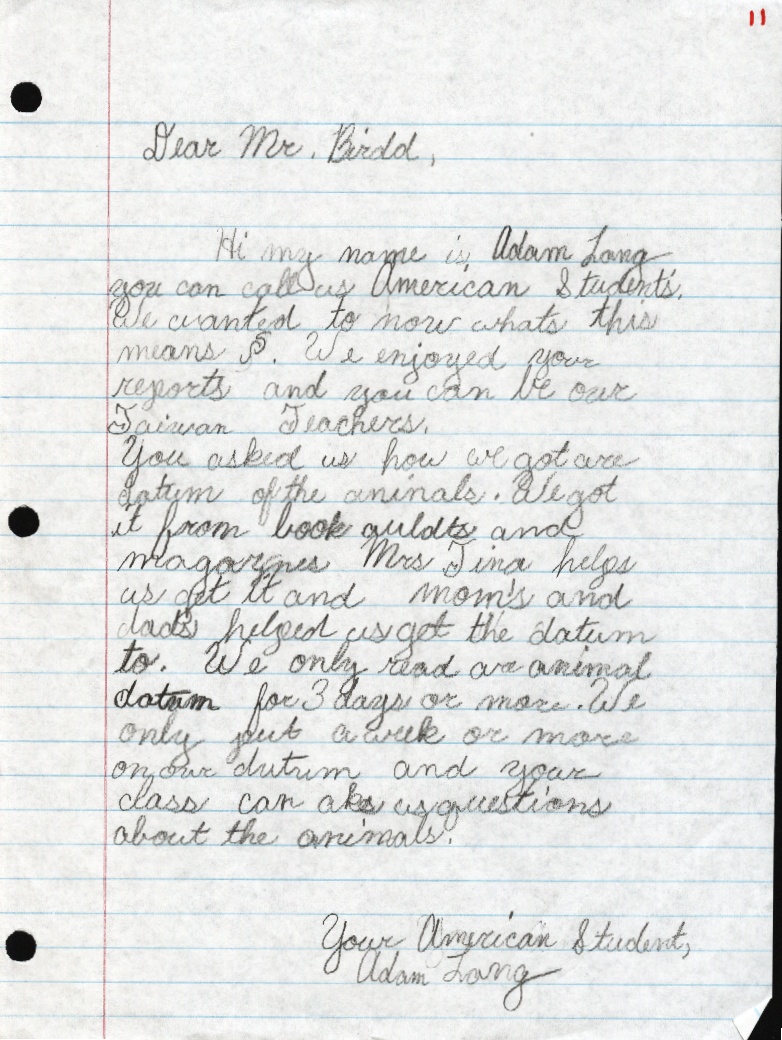 11
Dear Mr. Birdd,
Hi my name is Adam Lang
you can call us American Students.
We wanted to now whats this
means $. We enjoyed your
reports and you can be our
Taiwan Teachers.
You asked us how we got are
datum of the animals. We got
it from book auldts and
magazines Mrs Tina helps
us get it and mom's and
dad's helped us get the datum
to. We only read are animal
datum for 3 days or more. We
only put a week or more
on our dutum and your
class can aks us questions
about the animals.
Your American Student,
Adam Lang